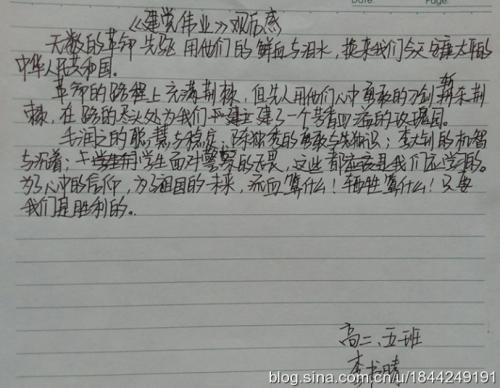 《建党伟业》观后感
无数的革命先驱用他们的鲜血与泪水，换来我们今天安康太平的
中华人民共和国。
革命的路程上充满荆棘，但先人用他们心中勇敢的刀剑斩杀荆
棘，在路的尽头处为我们建了一个芳香四溢的玫瑰园。
毛润之的聪慧与稳度，陈独秀的勇敢与先知识；李大钊的机智
与沉着；学生面对警察的无畏，这些都应该是我们应学的。
为了心中的信仰，为了祖国的未来，流血算什么！牺牲算什么！只要
我们是胜利的。
高二、五班
李书晴
blog.sina.com.cn/u/1844249191